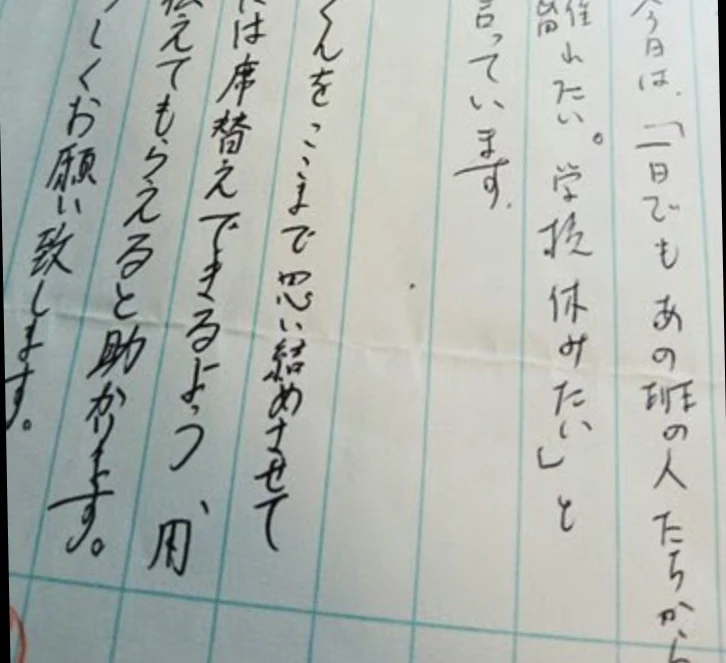 今日は、「一日でもあの班の人たちから
離れたい。学校休みたい」と
言っています。
くんをここまで思い結めさせて
は席替えできるよう、用
伝えてもらえると助かります。
しくお願い致します。